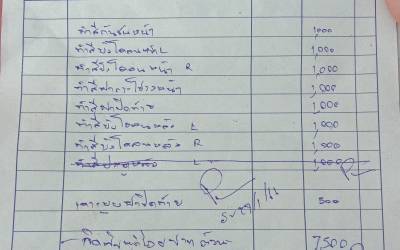 ทำสีกันชนหน้า 1,000
ทำสีบังโคลนหน้า L 1,000
ทำสีบังโคลนหน้า R 1,000
ทำสีฝากระโปรงหน้า 1,000
ทำสีฝาปิดท้าย 1,000
ทำสีบังโคลนหลัง L 1,000
ทำสีบังโคลนหลัง R 1,000
ทำสี L 1,000
เคาะบุบฝาปิดท้าย 500
7,500